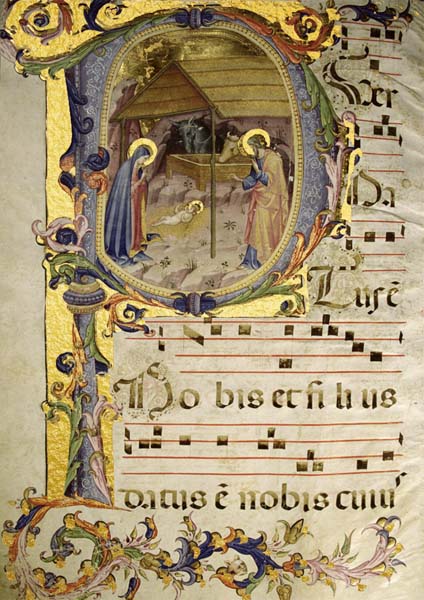 P Uer
Na
Tus ē
No bis et fi li us
datus ē nobis cuiu